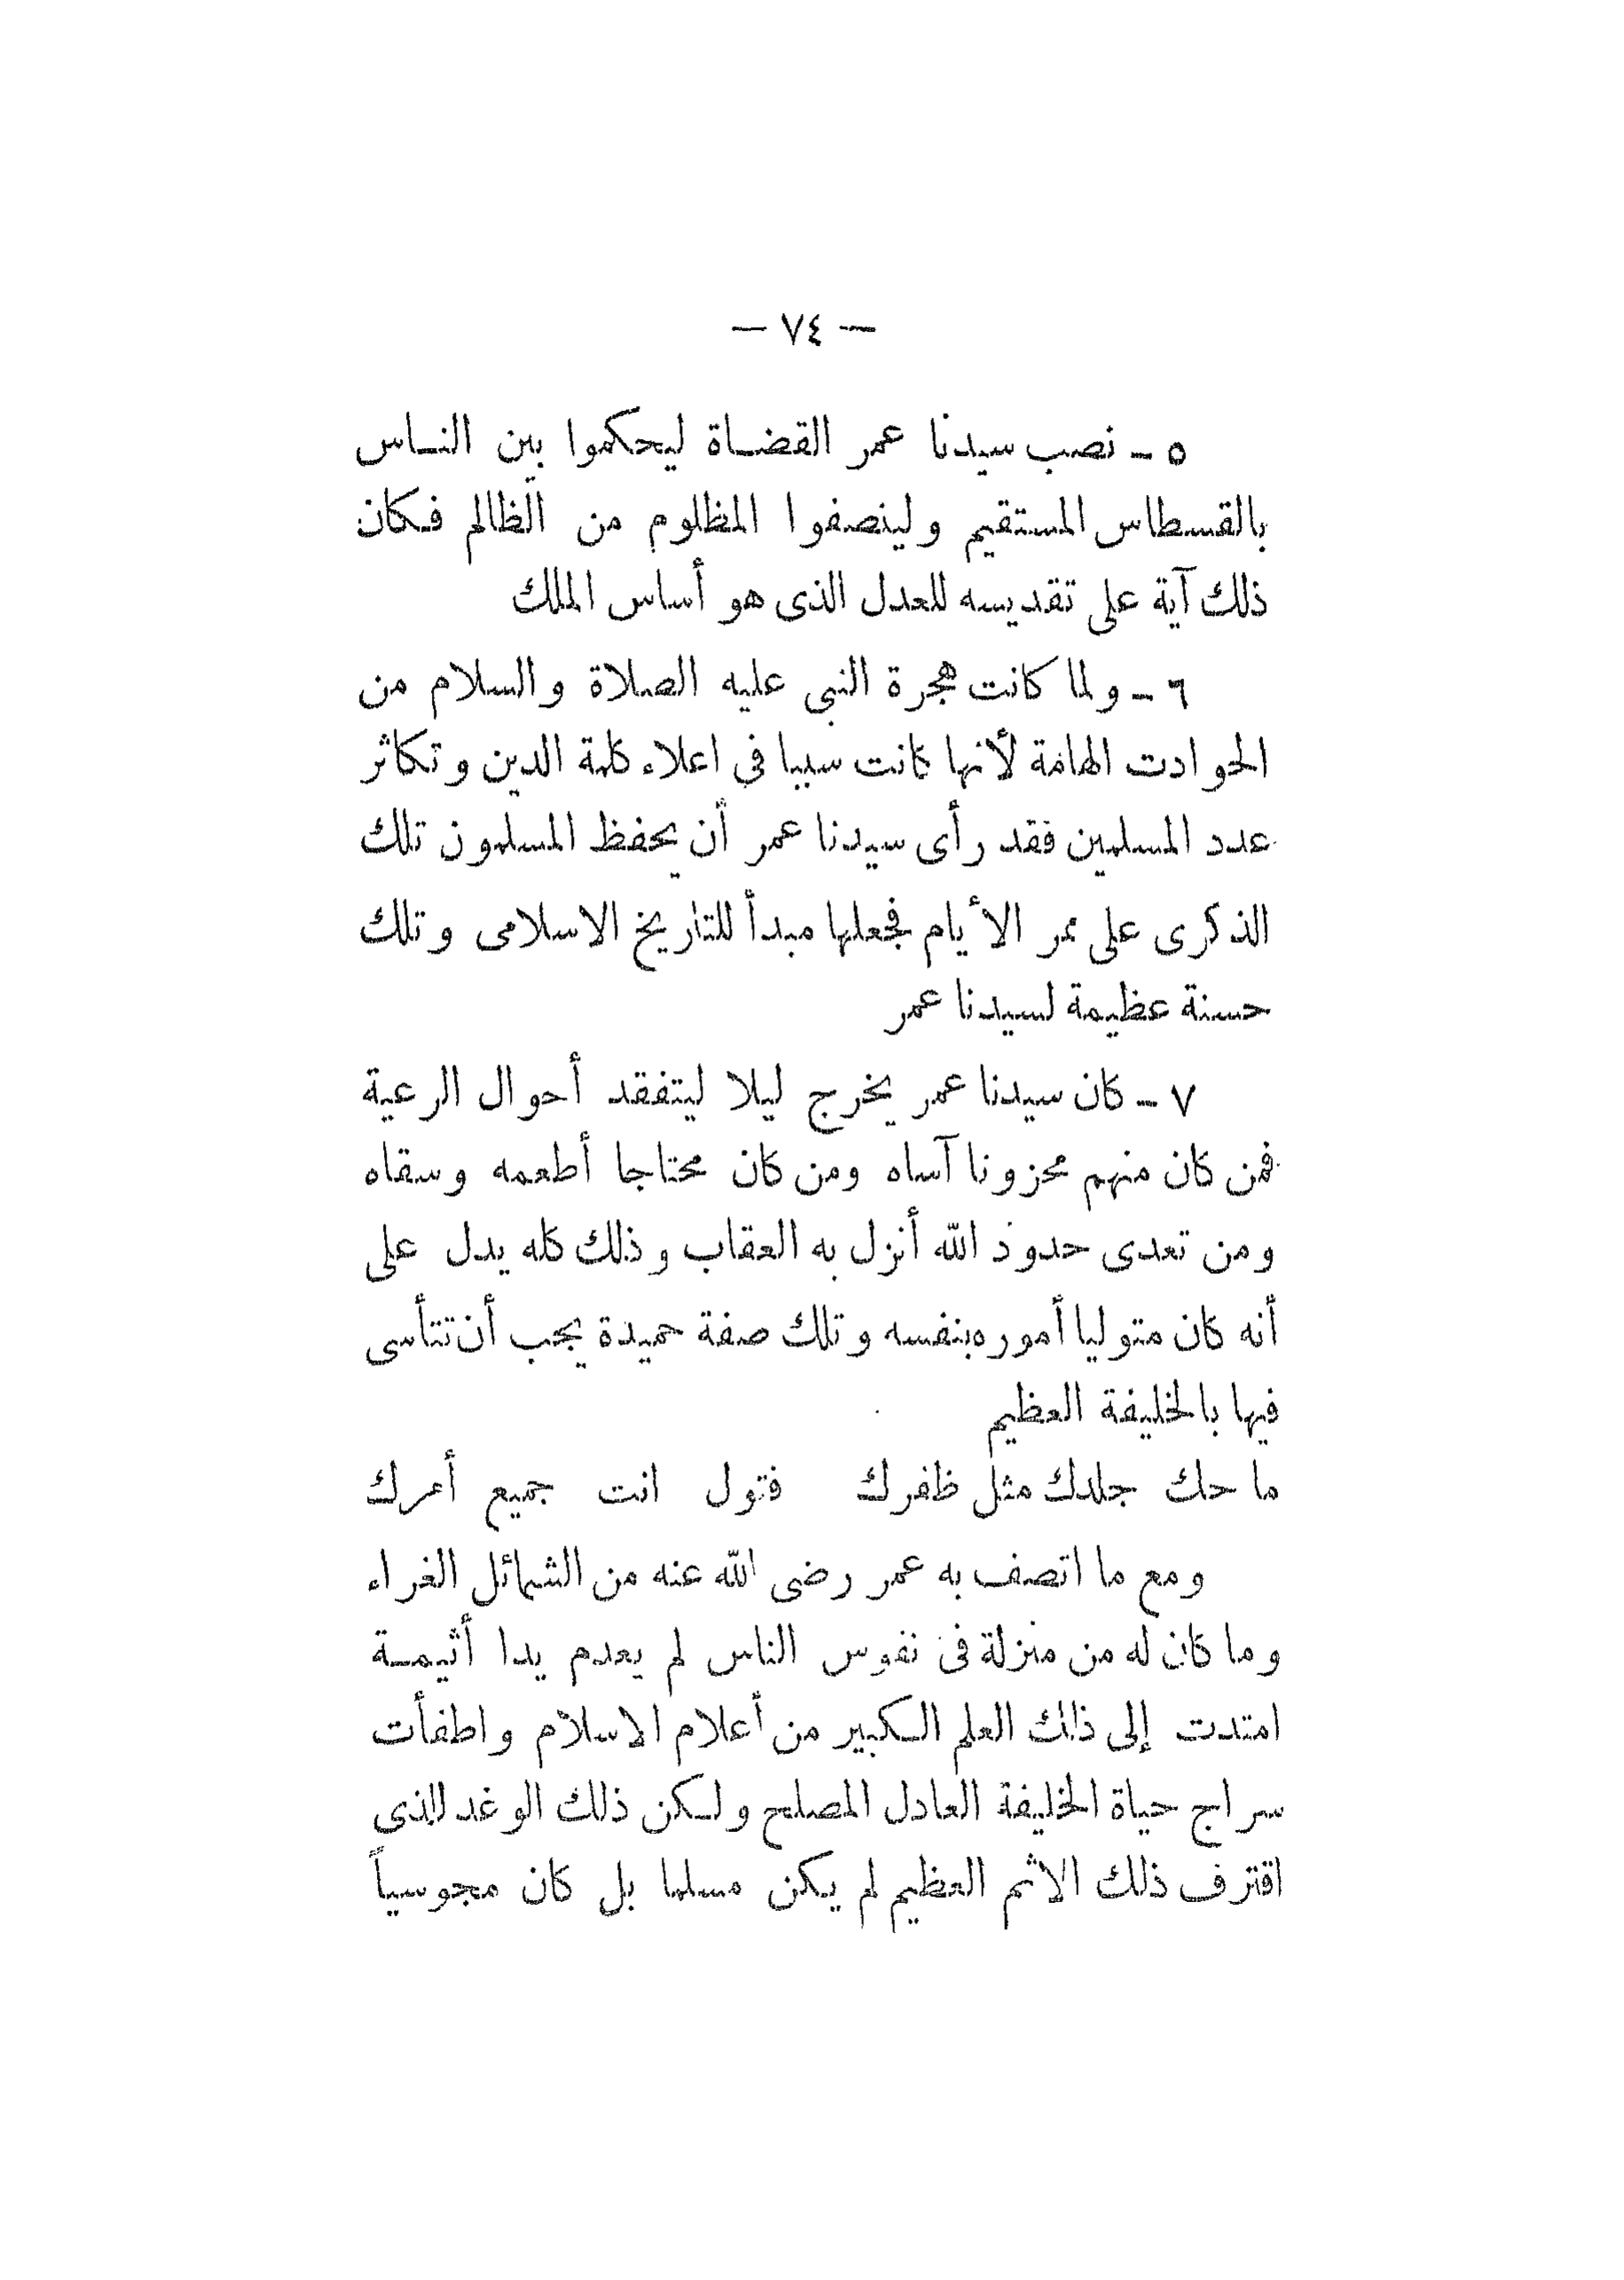 — ٧٤ —
٥ - نصب سيدنا عمر القضاة ليحكموا بين الناس
بالقسطاس المستقيم ولينصفوا المظلوم من الظالم فكان
ذلك آية على تقديسه للعدل الذى هو أساس الملك
٦ - ولما كانت هجرة النبى عليه الصلاة والسلام من
الحوادث الهامة لأنها كانت سببا فى اعلاء كلمة الدين وتكاثر
عدد المسلمين فقد رأى سيدنا عمر أن يحفظ المسلمون تلك
الذكرى على ممر الأيام فجعلها مبدأ للتاريخ الاسلامى وتلك
حسنة عظيمة لسيدنا عمر
٧ - كان سيدنا عمر يخرج ليلا ليتفقد أحوال الرعية
فمن كان منهم محزونا آساه ومن كان محتاجا أطعمه وسقاه
ومن تعدى حدود الله أنزل به العقاب وذلك كله يدل على
أنه كان متوليا أموره بنفسه وتلك صفة حميدة يجب أن تتأسى
فيها بالخليفة العظيم
ما حك جلدك مثل ظفرك فتول انت جميع أمرك
ومع ما اتصف به عمر رضى الله عنه من الشمائل الغراء
وما كان له من منزلة فى نفوس الناس لم يعدم يدا أثيمة
امتدت إلى ذلك العلم الكبير من أعلام الاسلام واطفأت
سراج حياة الخليفة العادل المصلح ولكن ذلك الوغد الذى
اقترف ذلك الاثم العظيم لم يكن مسلما بل كان مجوسياً